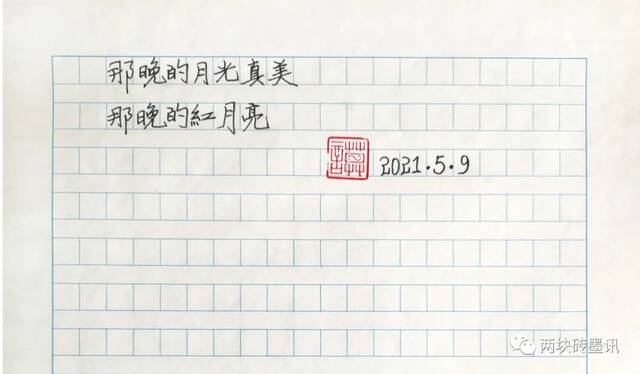 那晚的月光真美
那晚的紅月亮
2021.5.9
两块砖墨讯